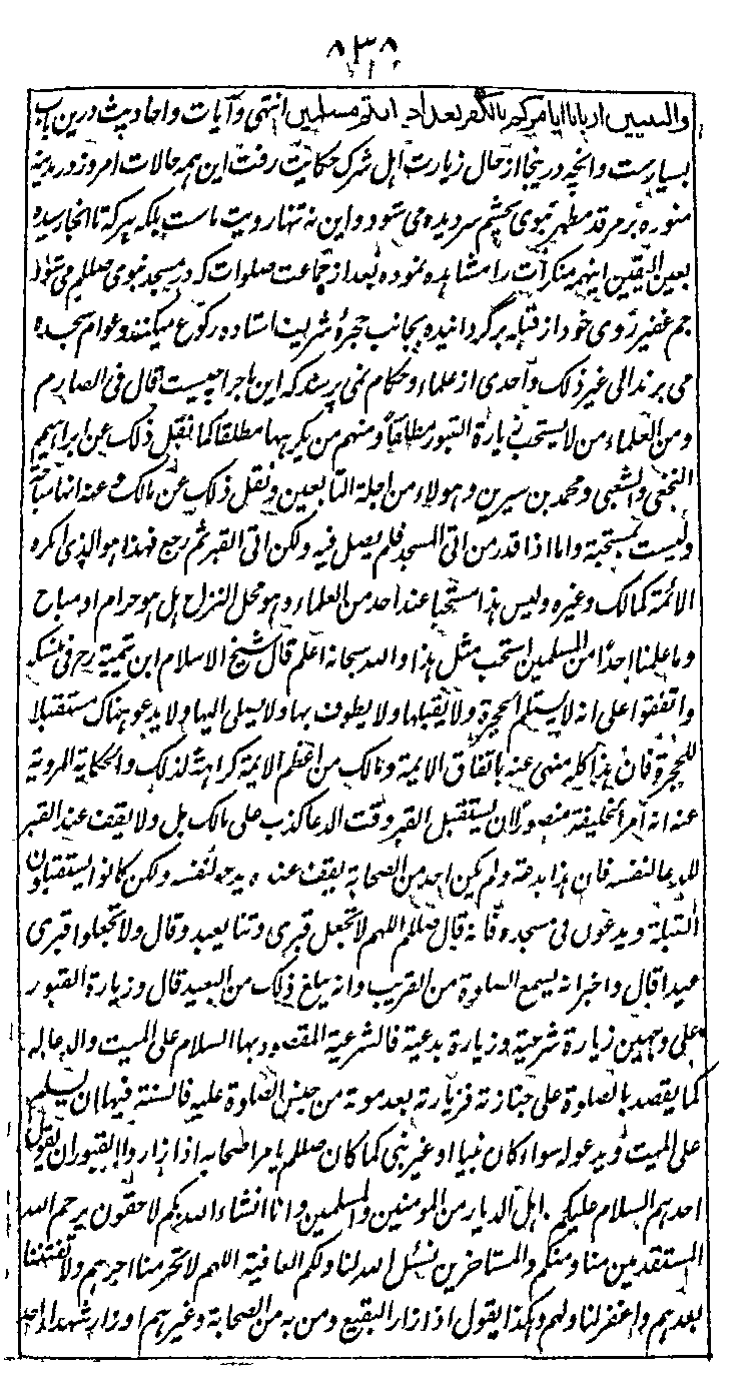 ۸۳۸
والنبیین اربابا ایامرکم بالکفر بعد اذ انتم مسلمین انتهی وآیات واحادیث درین باب
بسیارست وانچه درینجا از حال زیارت اہل شرک حکایت رفت این ہمہ حالات امروز در مدینہ
منوره بر مرقد مطهر نبوی بچشم سر دیده می شود و این نہ تنها رویت ماست بلکہ ہر کہ تا انجا رسیده
بعین الیقین اینهمه منکرات را مشاہده نموده بعد از جماعت صلوات کہ در مسجد نبوی صللم می شود
جم غفیر روی خود از قبلہ برگردانیده بجانب حجرۂ شریف استاده رکوع میکنند و عوام سجده
می برند الی غیر ذلک واحدی از علماء وحکام نمی پرسد کہ این ماجرا چیست قال فی الصارم
ومن العلماء من لا یستحب زیارة القبور مطلقا ومنهم من یکرہها مطلقا کما نقل ذلک عن ابراہیم
النخعی والشعبی ومحمد بن سیرین وہولاء من اجلة التابعین ونقل ذلک عن مالک وعنه انها مباحة
ولیست بمستحبة واما اذا قدر من اتی المسجد فلم یصل فیه ولکن اتی القبر ثم رجع فهذا ہو الذی اکرہ
الائمة کمالک وغیره ولیس ہذا مستحبا عند احد من العلماء وہو محل النزاع ہل ہو حرام او مباح
وما علمنا احدا من المسلمین استحب مثل ہذا والله سبحانه اعلم قال شیخ الاسلام ابن تیمیة رح فی منسکہ
واتفقوا علی انه لا یستلم الحجرة ولا یقبلها ولا یطوف بها ولا یصلی الیها ولا یدعو ہناک مستقبلا
للحجرة فان ہذا کله منهی عنه باتفاق الایمة ومالک من اعظم الایمة کراہة لذلک والحکایة المرویة
عنه انه امر الخلیفة منصورلان یستقبل القبر وقت الدعا کذب علی مالک بل ولا یقف عند القبر
للدعا لنفسه فان ہذا بدعة ولم یکن احد من الصحابة یقف عنده یدعو لنفسه ولکن کانوا یستقبلون
القبلة ویدعون فی مسجده فانه قال صللم اللهم لا تجعل قبری وثنا یعبد وقال ولا تجعلوا قبری
عیدا قال واخبر انه یسمع الصلوة من القریب وانه یبلغ ذلک من البعید قال وزیارة القبور
علی وجهین زیارة شرعیة وزیارة بدعیة فالشرعیة المقصود بها السلام علی المیت والدعا له
کما یقصد بالصلوة علی جنازته فزیارته بعد موته من جنس الصلوة علیه فالسنة فیها ان یسلم
علی المیت ویدعو له سواء کان نبیا او غیر نبی کما کان صللم یامر اصحابه اذا زاروا القبور ان یقول
احدہم السلام علیکم اہل الدیار من المومنین والمسلمین وانا انشاء الله بکم لاحقون یرحم الله
المستقدمین منا ومنکم والمستاخرین نسئل الله لنا ولکم العافیة اللهم لا تحرمنا اجرہم ولا تفتنا
بعدہم واغفر لنا ولهم وہکذا یقول اذا زار البقیع ومن به من الصحابة وغیرہم او زار شهداء احد